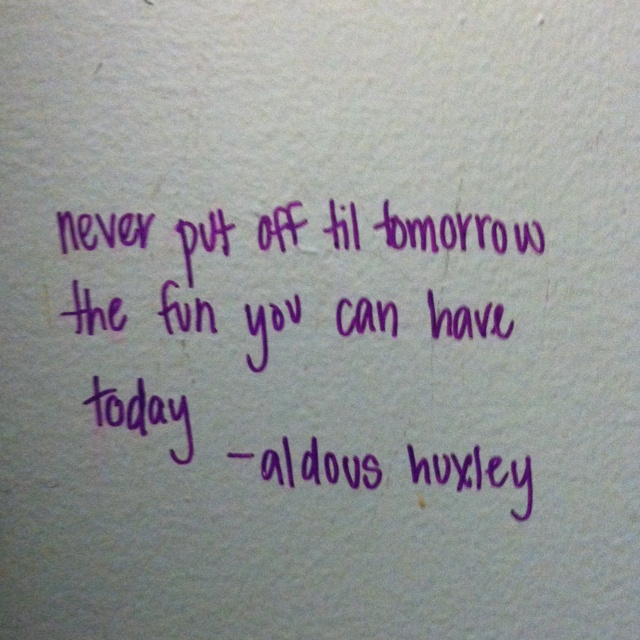 never put off til tomorrow
the fun you can have
today
-aldous huxley